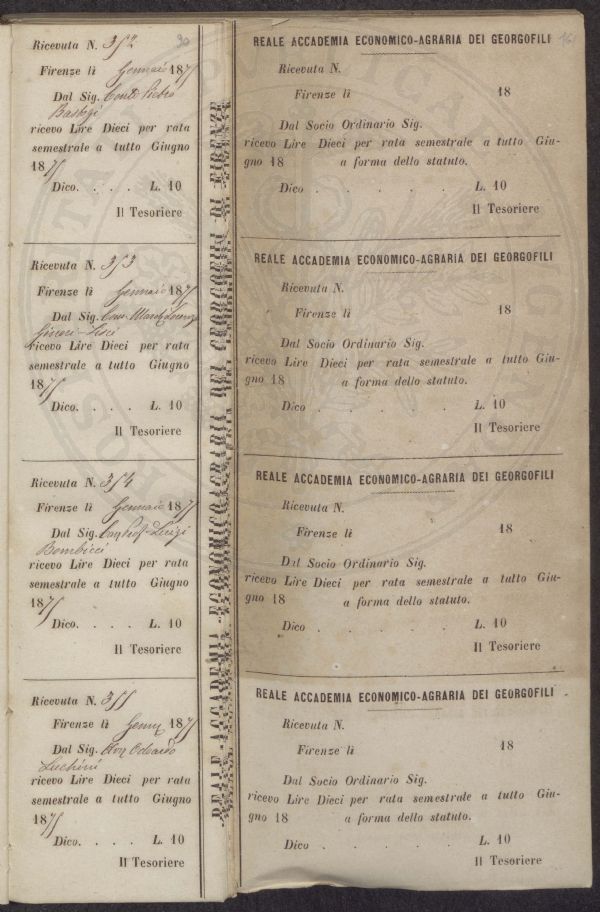 Ricevuta N. 352
Firenze lì Gennaio 1875
Dal Sig. Conte Pietro
Bastogi
ricevo Lire Dieci per rata
semestrale a tutto Giugno
1875
Dico. . . . L. 10
Il Tesoriere
Ricevuta N. 353
Firenze lì Gennaio 1875
Dal Sig. Lorenzo
Ginori-Lisci
ricevo Lire Dieci per rata
semestrale a tutto Giugno
1875
Dico. . . . L. 10
Il Tesoriere
Ricevuta N. 354
Firenze lì Gennaio 1875
Dal Sig. Luigi
Bombicci
ricevo Lire Dieci per rata
semestrale a tutto Giugno
1875
Dico. . . . L. 10
Il Tesoriere
Ricevuta N. 355
Firenze lì 1875
Dal Sig. Odoardo
Luchini
ricevo Lire Dieci per rata
semestrale a tutto Giugno
1875
Dico. . . . L. 10
Il Tesoriere
REALE ACCADEMIA ECONOMICO-AGRARIA DEI GEORGOFILI DI FIRENZE
REALE ACCADEMIA ECONOMICO-AGRARIA DEI GEORGOFILI
Ricevuta N.
Firenze lì 18
Dal Socio Ordinario Sig.
ricevo Lire Dieci per rata semestrale a tutto Giu-
gno 18 a forma dello statuto.
Dico . . . . L. 10
Il Tesoriere
REALE ACCADEMIA ECONOMICO-AGRARIA DEI GEORGOFILI
Ricevuta N.
Firenze lì 18
Dal Socio Ordinario Sig.
ricevo Lire Dieci per rata semestrale a tutto Giu-
gno 18 a forma dello statuto.
Dico . . . . L. 10
Il Tesoriere
REALE ACCADEMIA ECONOMICO-AGRARIA DEI GEORGOFILI
Ricevuta N.
Firenze lì 18
Dal Socio Ordinario Sig.
ricevo Lire Dieci per rata semestrale a tutto Giu-
gno 18 a forma dello statuto.
Dico . . . . L. 10
Il Tesoriere
REALE ACCADEMIA ECONOMICO-AGRARIA DEI GEORGOFILI
Ricevuta N.
Firenze lì 18
Dal Socio Ordinario Sig.
ricevo Lire Dieci per rata semestrale a tutto Giu-
gno 18 a forma dello statuto.
Dico . . . . L. 10
Il Tesoriere